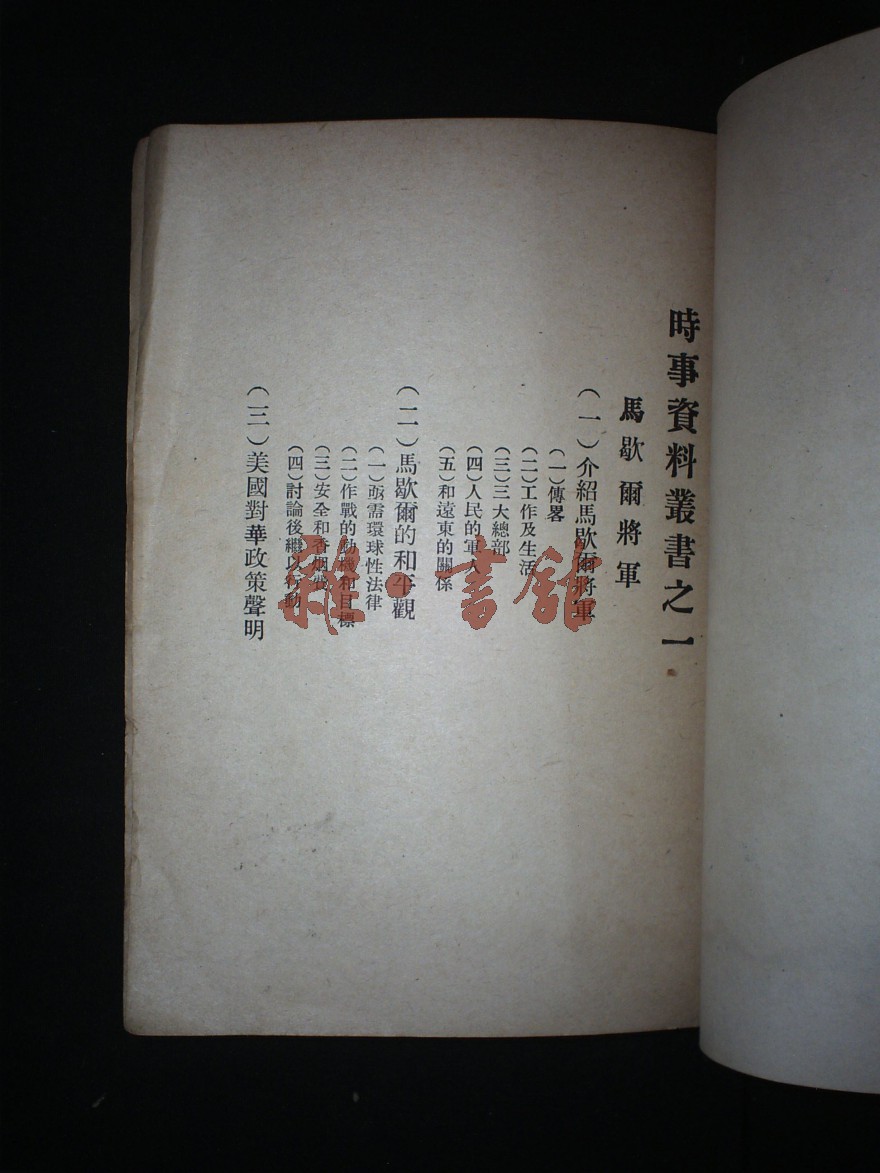 時事資料叢書之一
馬歇爾將軍
（一）介紹馬歇爾將軍
（一）傳畧
（二）工作及生活
（三）三大總部
（四）人民的軍人
（五）和遠東的關係
（二）馬歇爾的和平觀
（一）亟需環球性法律
（二）作戰的動機和目標
（三）安全和香烟費
（四）討論後繼以行動
（三）美國對華政策聲明
雜·書館